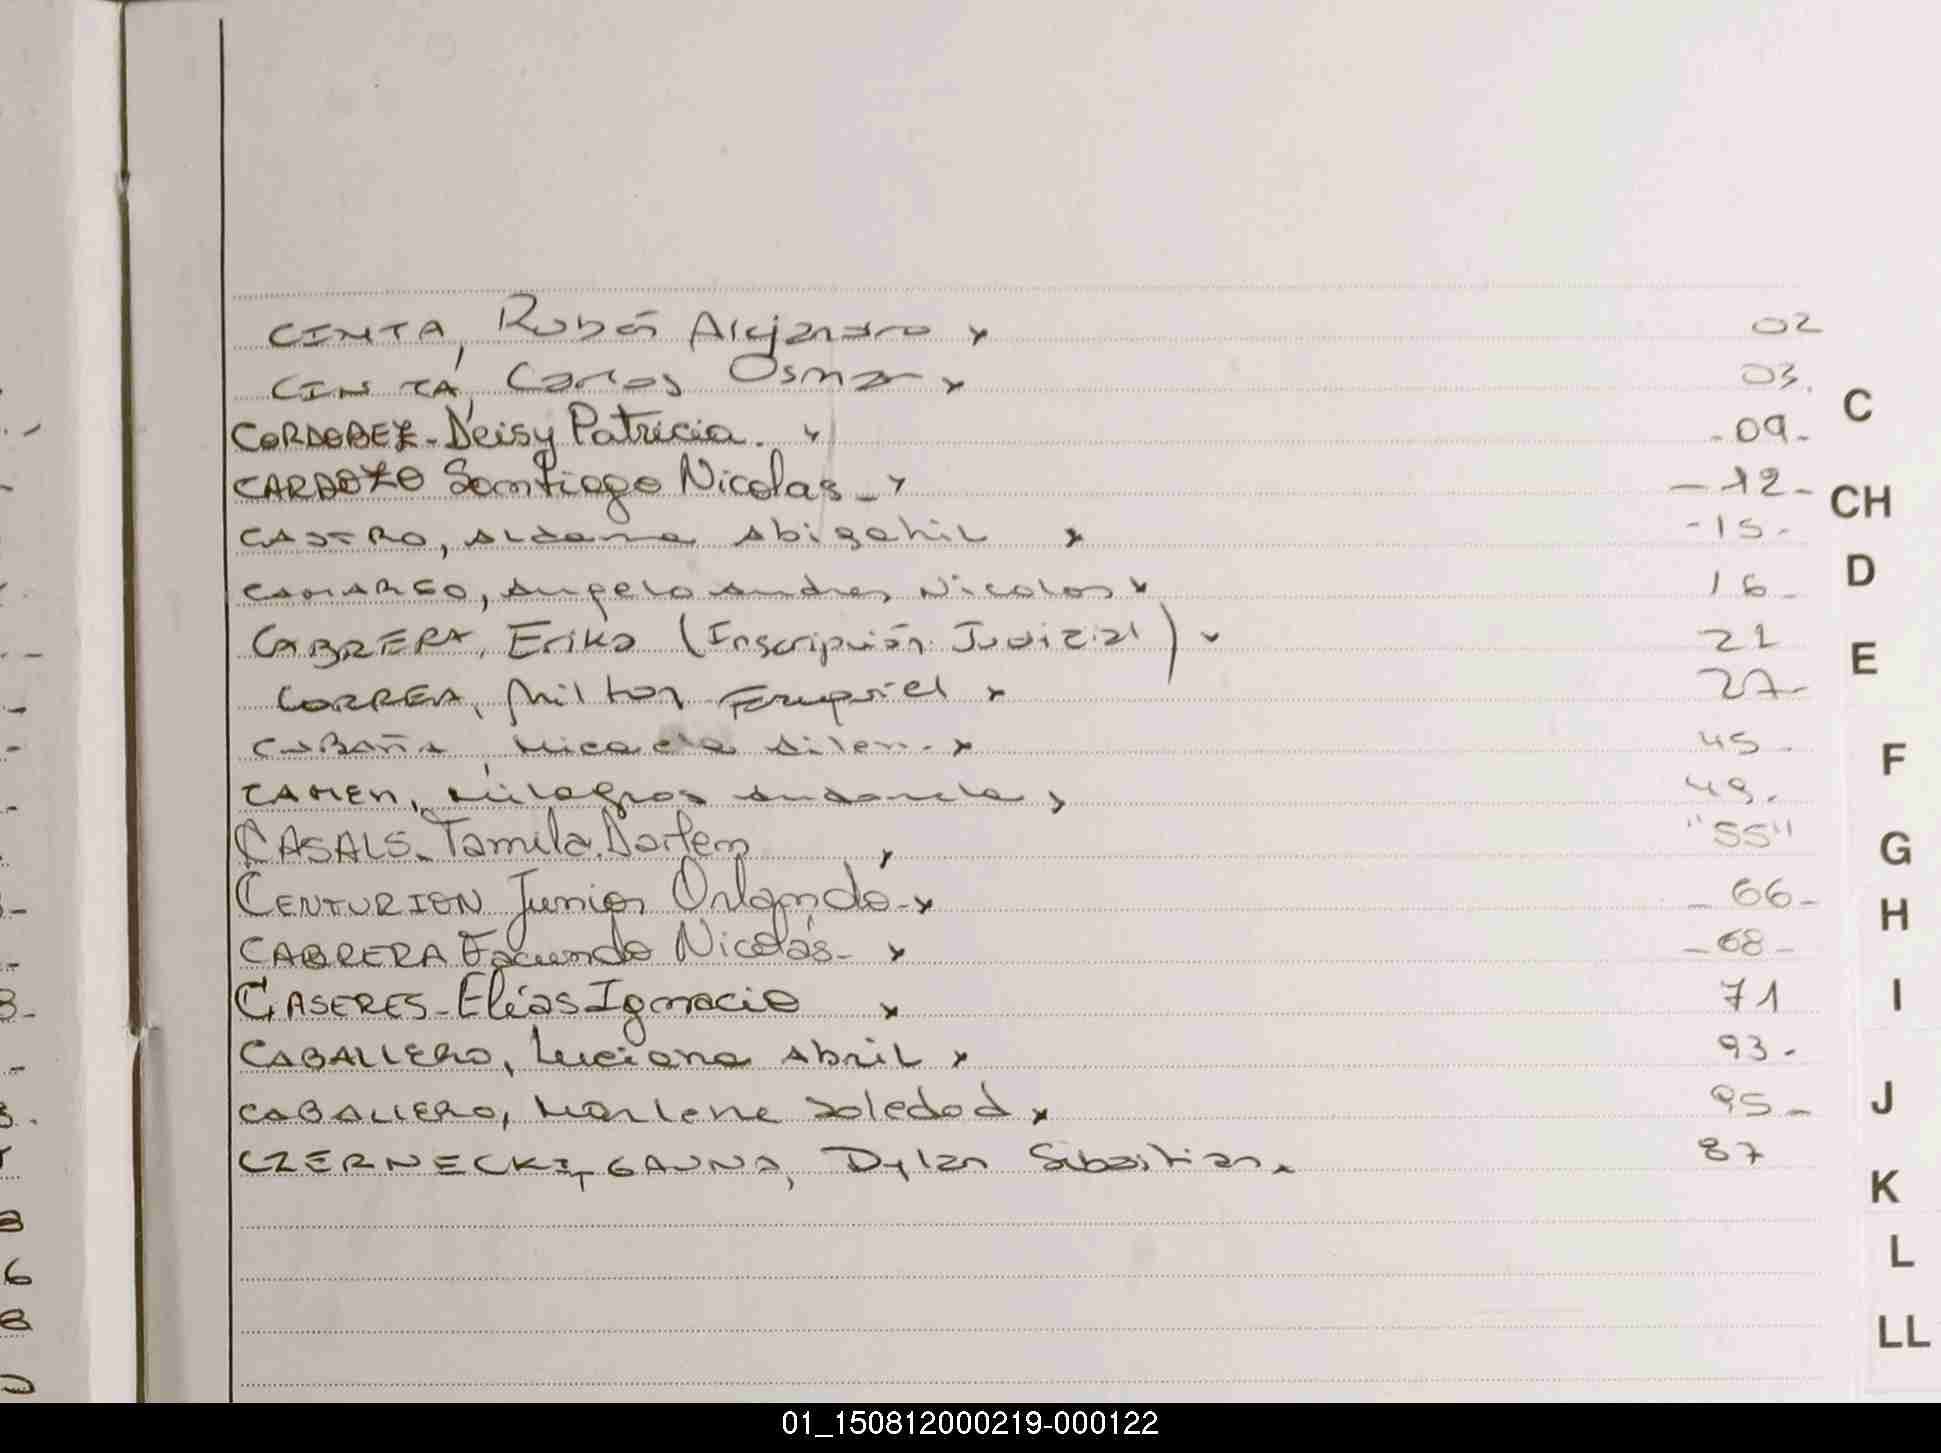 CINTA, Rubén Alejandro x 02
CINTA, Carlos Osmar x 03.
CORDOBEZ - Deisy Patricia. -09-
CARDOZO Santiago Nicolas - -12-
CASTRO, Aldana Abigahil x -15-
CAMARGO, Angelo Andres Nicolas x 16-
CABRERA, Erika (Inscripción Judicial) 21
CORREA, Milton Ezequiel x 27-
CABAÑA, Micaela Ailen - x 45-
CAMEN, Milagros 49.
CASALS - Tamila Darlen "55"
CENTURION Junior Orlando - x -66-
CABRERA Facundo Nicolás - x -68-
CASERES - Elías Ignacio x 71
CABALLERO, Luciana Abril x 93-
CABALLERO, Marlene Soledad x 95-
CZERNECKI, GAUNA, Dylan Sebastian. 87
C
CH
D
E
F
G
H
I
J
K
L
LL
01_150812000219-000122